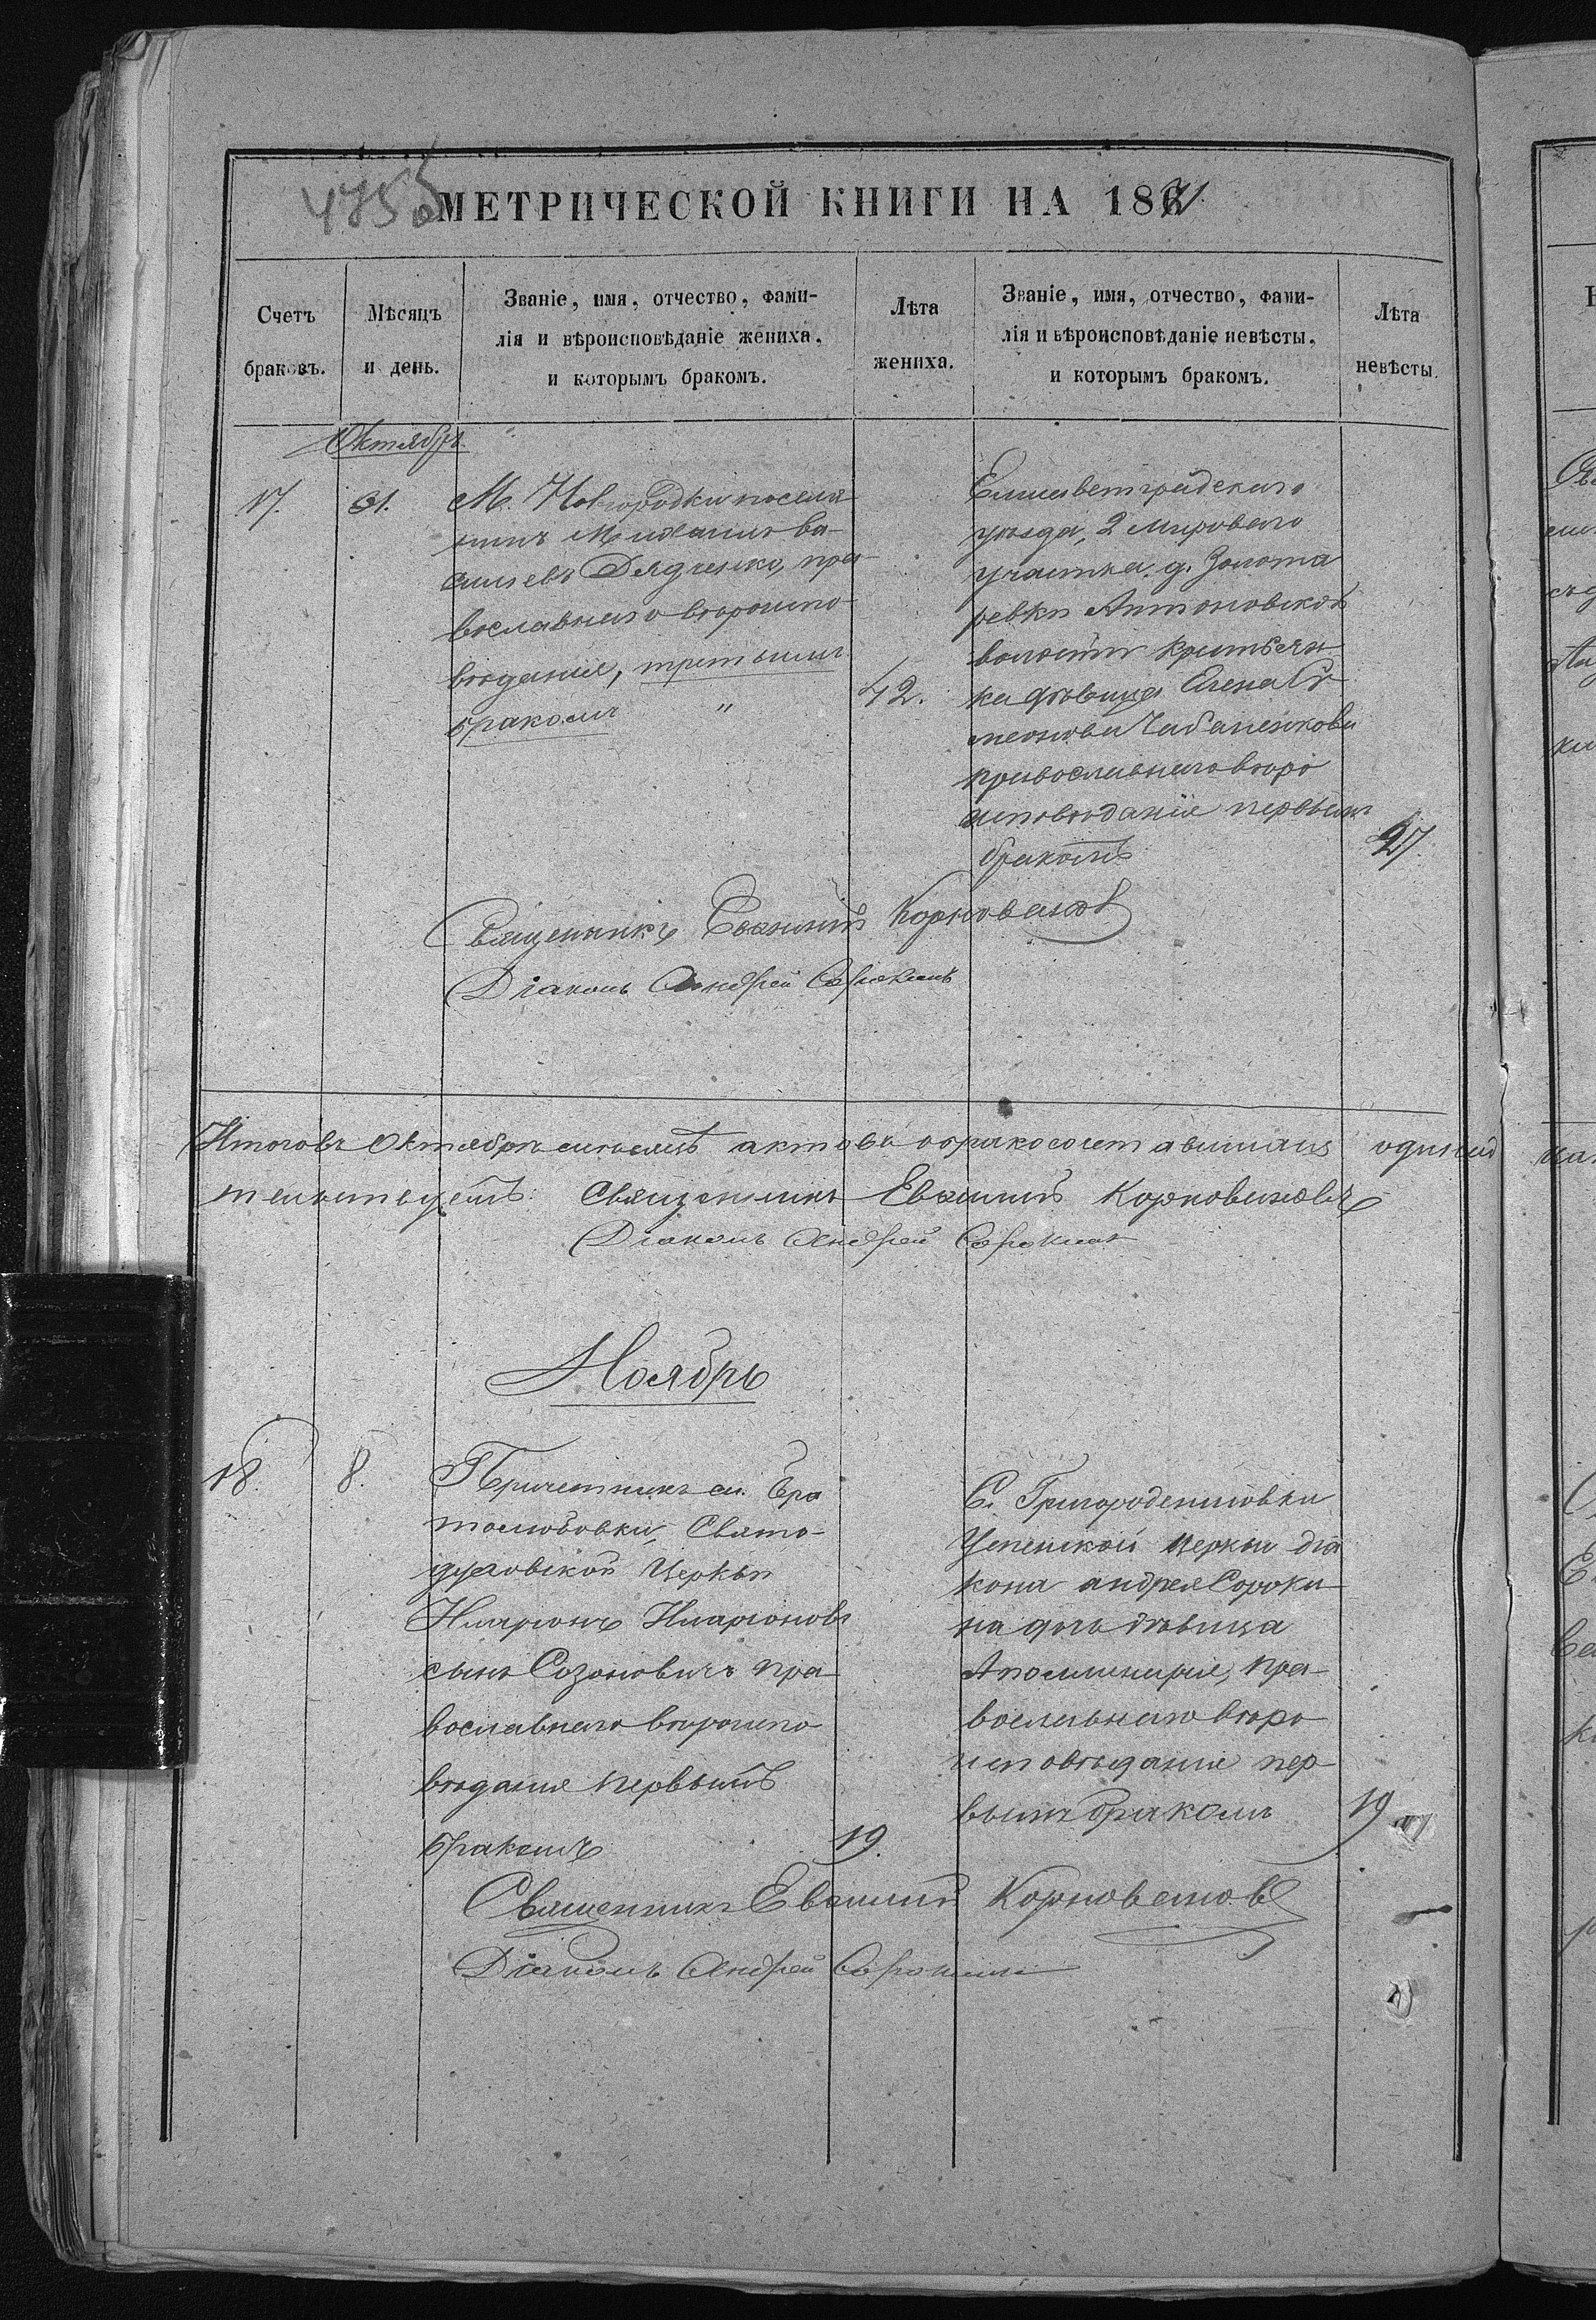 475
МЕТРИЧЕСКОЙ КНИГИ НА 1871
Счетъ браковъ.
Мѣсяцъ и день.
Званіе, имя, отчество, фами-
лія и вѣроисповѣданіе жениха,
и которымъ бракомъ.
Лѣта жениха.
Званіе, имя, отчество, фами-
лія и вѣроисповѣданіе невѣсты,
и которымъ бракомъ.
Лѣта невѣсты.
Октябрь
17. 31.
М. Новгородки поселя-
нинъ Михаилъ Ва-
сильевъ Дядченко, пра-
вославнаго вѣроиспо-
вѣданія, третьимъ
бракомъ "
42.
Елисаветградскаго
уѣзда, 2 Мироваго
участка, д. Золота
ревки Антоновской
волости крестьян-
ка дѣвица Елена Си-
меонова Чабаненкова
православнаго вѣро
исповѣданія первымъ
бракомъ
27.
Священникъ Евфимій Корновановъ
Діаконъ Андрей Сорокинъ
Итого въ Октябрѣ мѣсяцѣ актовъ о бракосочетавшихся
Священникъ Евфимій Корновановъ
Діаконъ Андрей Сорокинъ
Ноябрь
18. 8.
Причетникъ с. Бра
толюбовки, Свято-
духовской Церкви
Иларіонъ Иларіоновъ
сынъ Созоновичъ пра-
вославнаго вѣроиспо-
вѣданія первымъ
бракомъ
19.
С. Григороденисовки
Успенской церкви діа
кона Андрея Сороки-
на дочь дѣвица
Аполлинарія, пра-
вославнаго вѣро-
исповѣданія пер-
вымъ бракомъ
19
Священникъ Евфимій Корновановъ
Діаконъ Андрей Сорокинъ